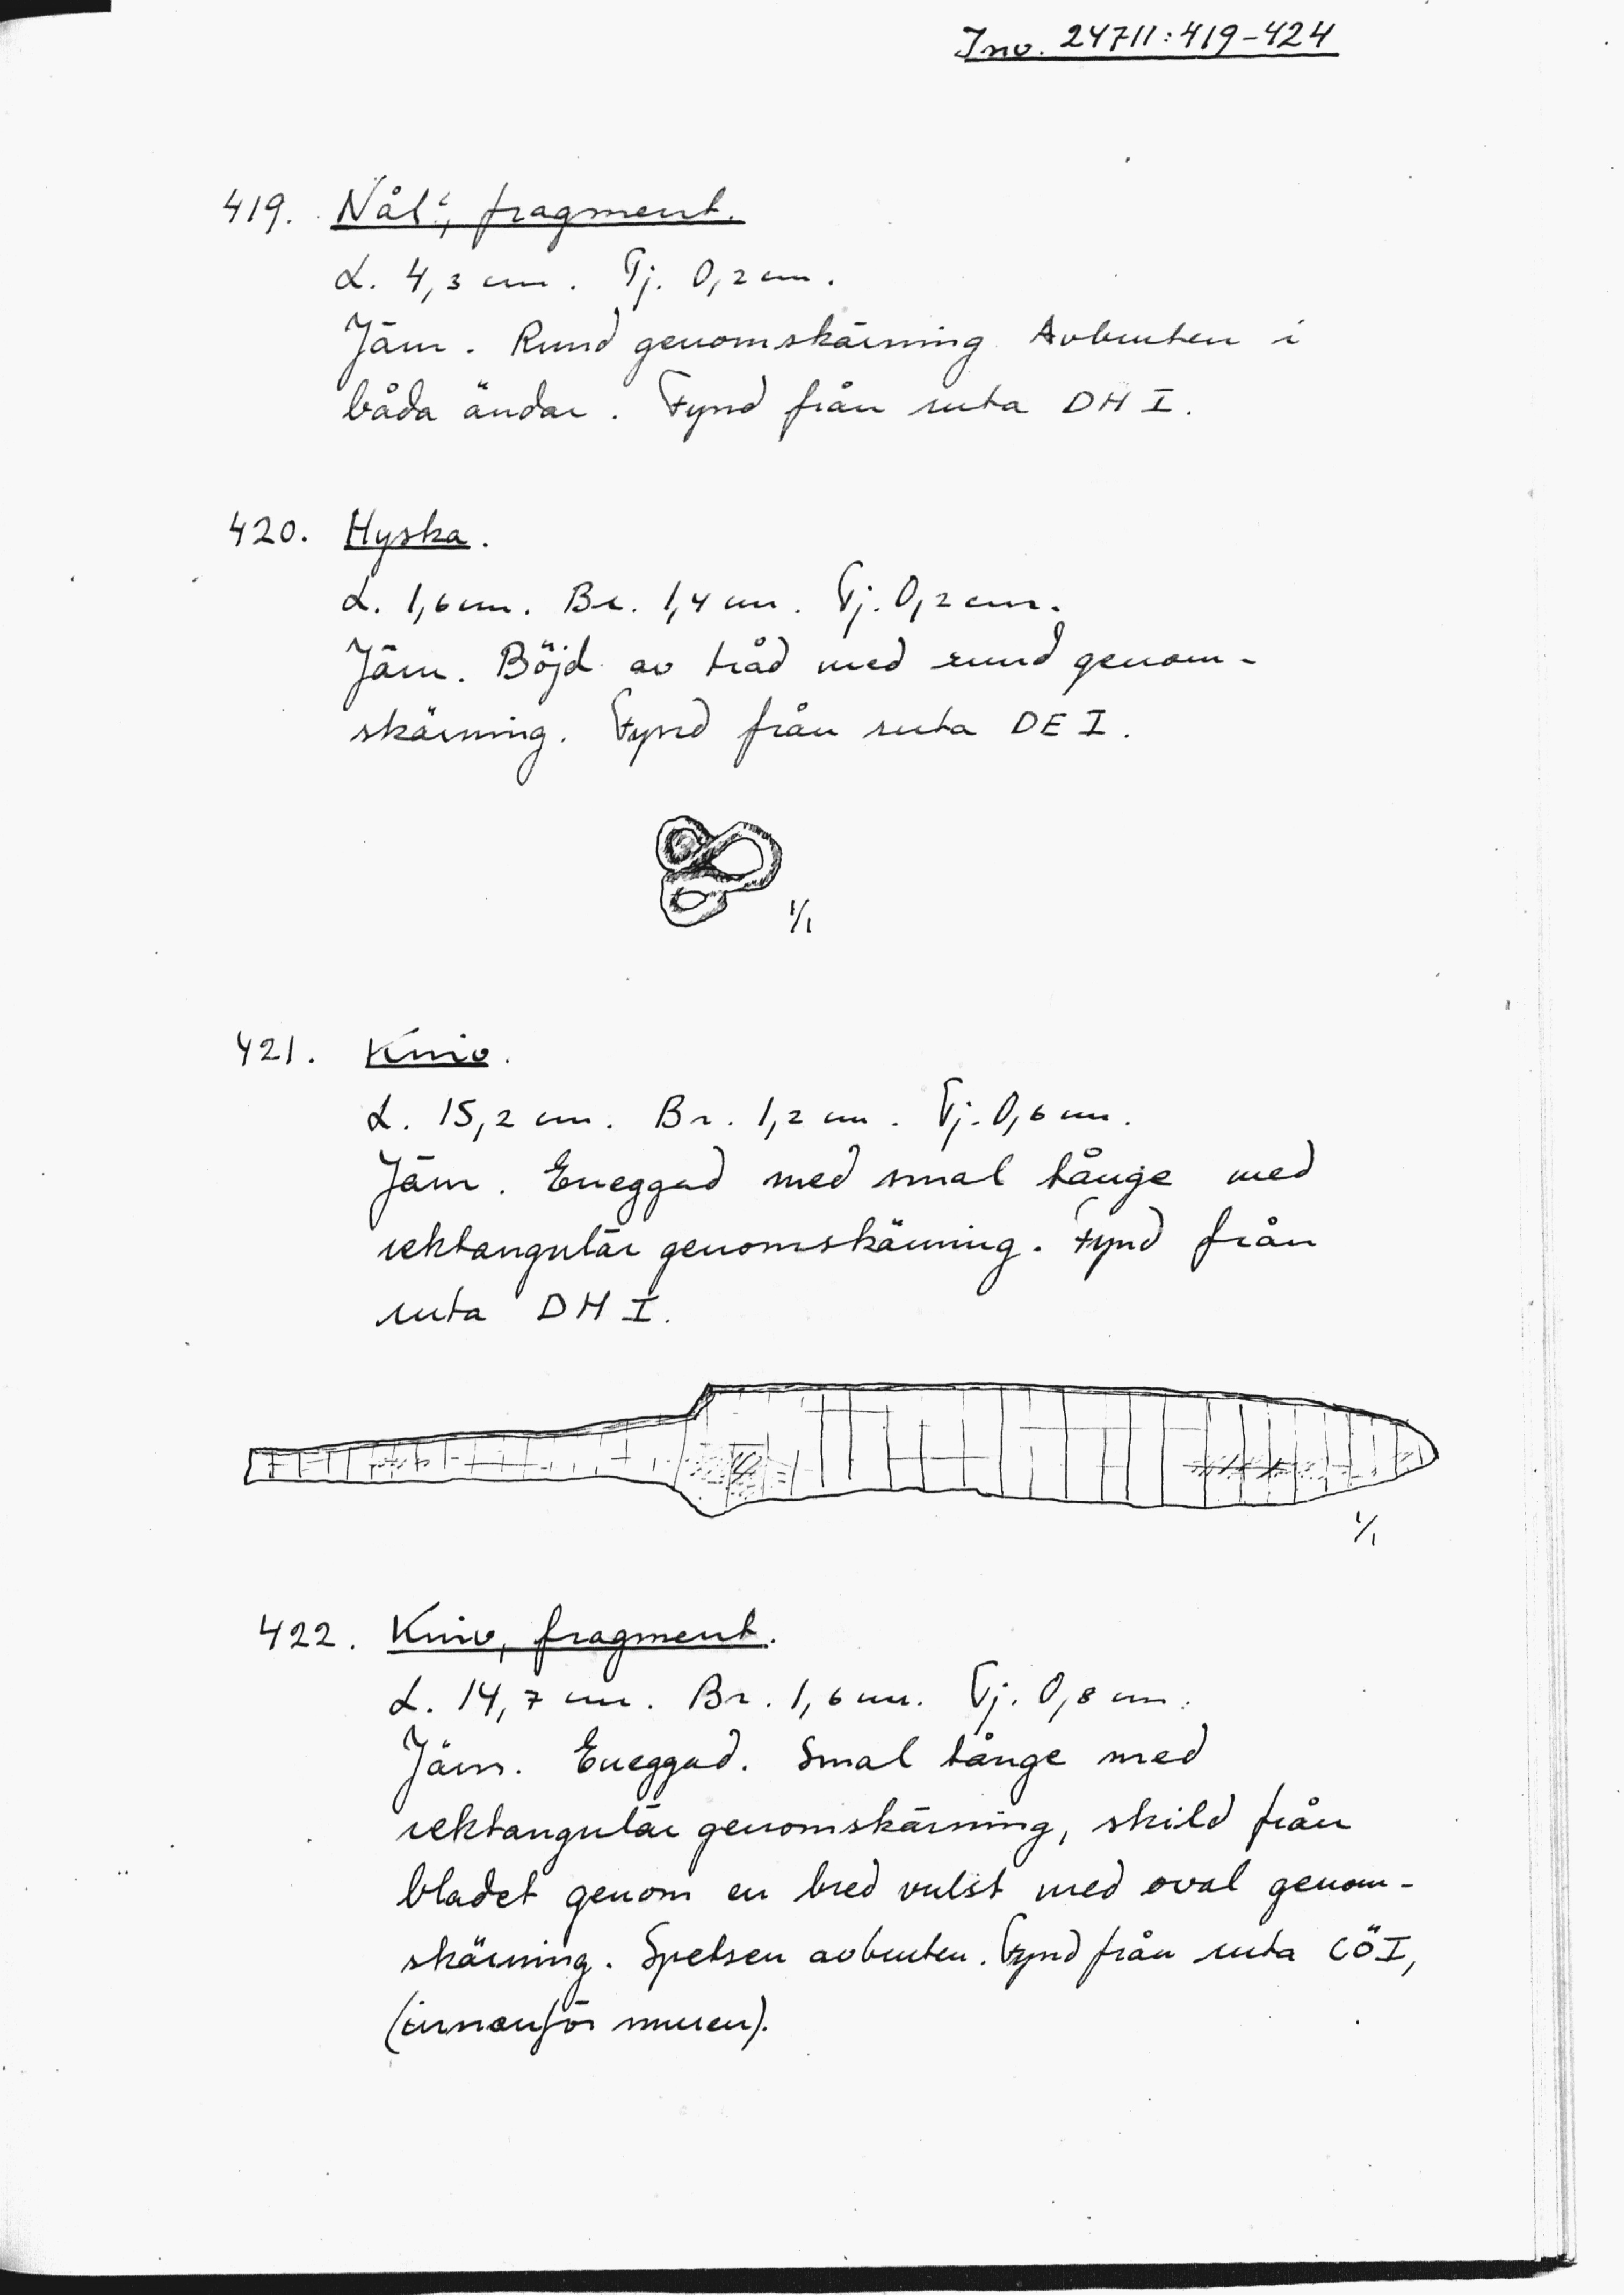 Inv. 24711:419-424
419. Nål?, fragment.
L. 4,3 cm. Tj. 0,2 cm.
Järn. Rund genomskärning Avbruten i
båda ändar. Fynd från ruta DH I.
420. Hyska.
L. 1,6 cm. Br. 1,4 cm. Tj. 0,2 cm.
Järn. Böjd av tråd med rund genom-
skärning. Fynd från ruta DE I.
1/1
421. Kniv.
L. 15,2 cm. Br. 1,2 cm. Tj. 0,6 cm.
Järn. Eneggad med smal tånge med
rektangulär genomskärning. Fynd från
ruta DH I.
1/1
422. Kniv, fragment.
L. 14,7 cm. Br. 1,6 cm. Tj. 0,8 cm.
Järn. Eneggad. Smal tånge med
rektangulär genomskärning, skild från
bladet genom en bred vulst med oval genom-
skärning. Spetsen avbruten. Fynd från ruta CÖI,
(innanför muren).